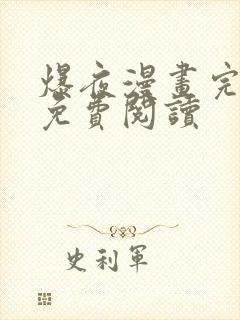 爆夜漫畫完
免費閱讀
史利軍